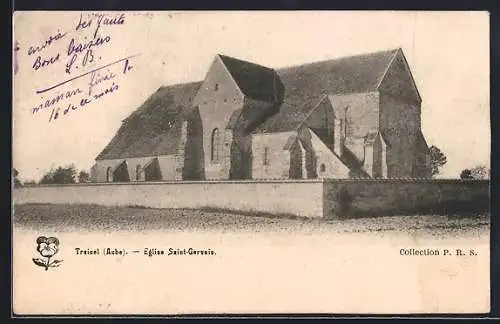 envoie des gants
Bons baisers
L. B
maman fixée le
16 de ce mois
Traînel (Aube). — Eglise Saint-Gervais.
Collection P. R. S.